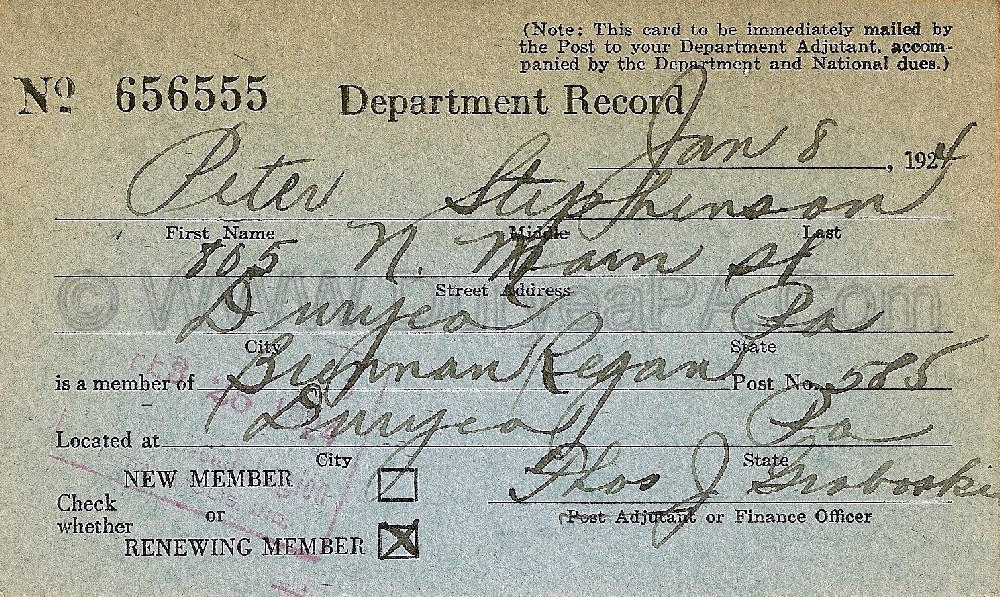 (Note: This card to be immediately mailed by
the Post to your Department Adjutant, accom-
panied by the Department and National dues.)
No 656555 Department Record
Jan 8, 1924
Peter Stephenson
First Name Middle Last
805 N. Main St
Street Address
Duryea Pa
City State
is a member of Brennan Regan Post No. 585
Located at Duryea Pa
City State
Check whether
NEW MEMBER
or
RENEWING MEMBER
Thos J Graboski
Post Adjutant or Finance Officer